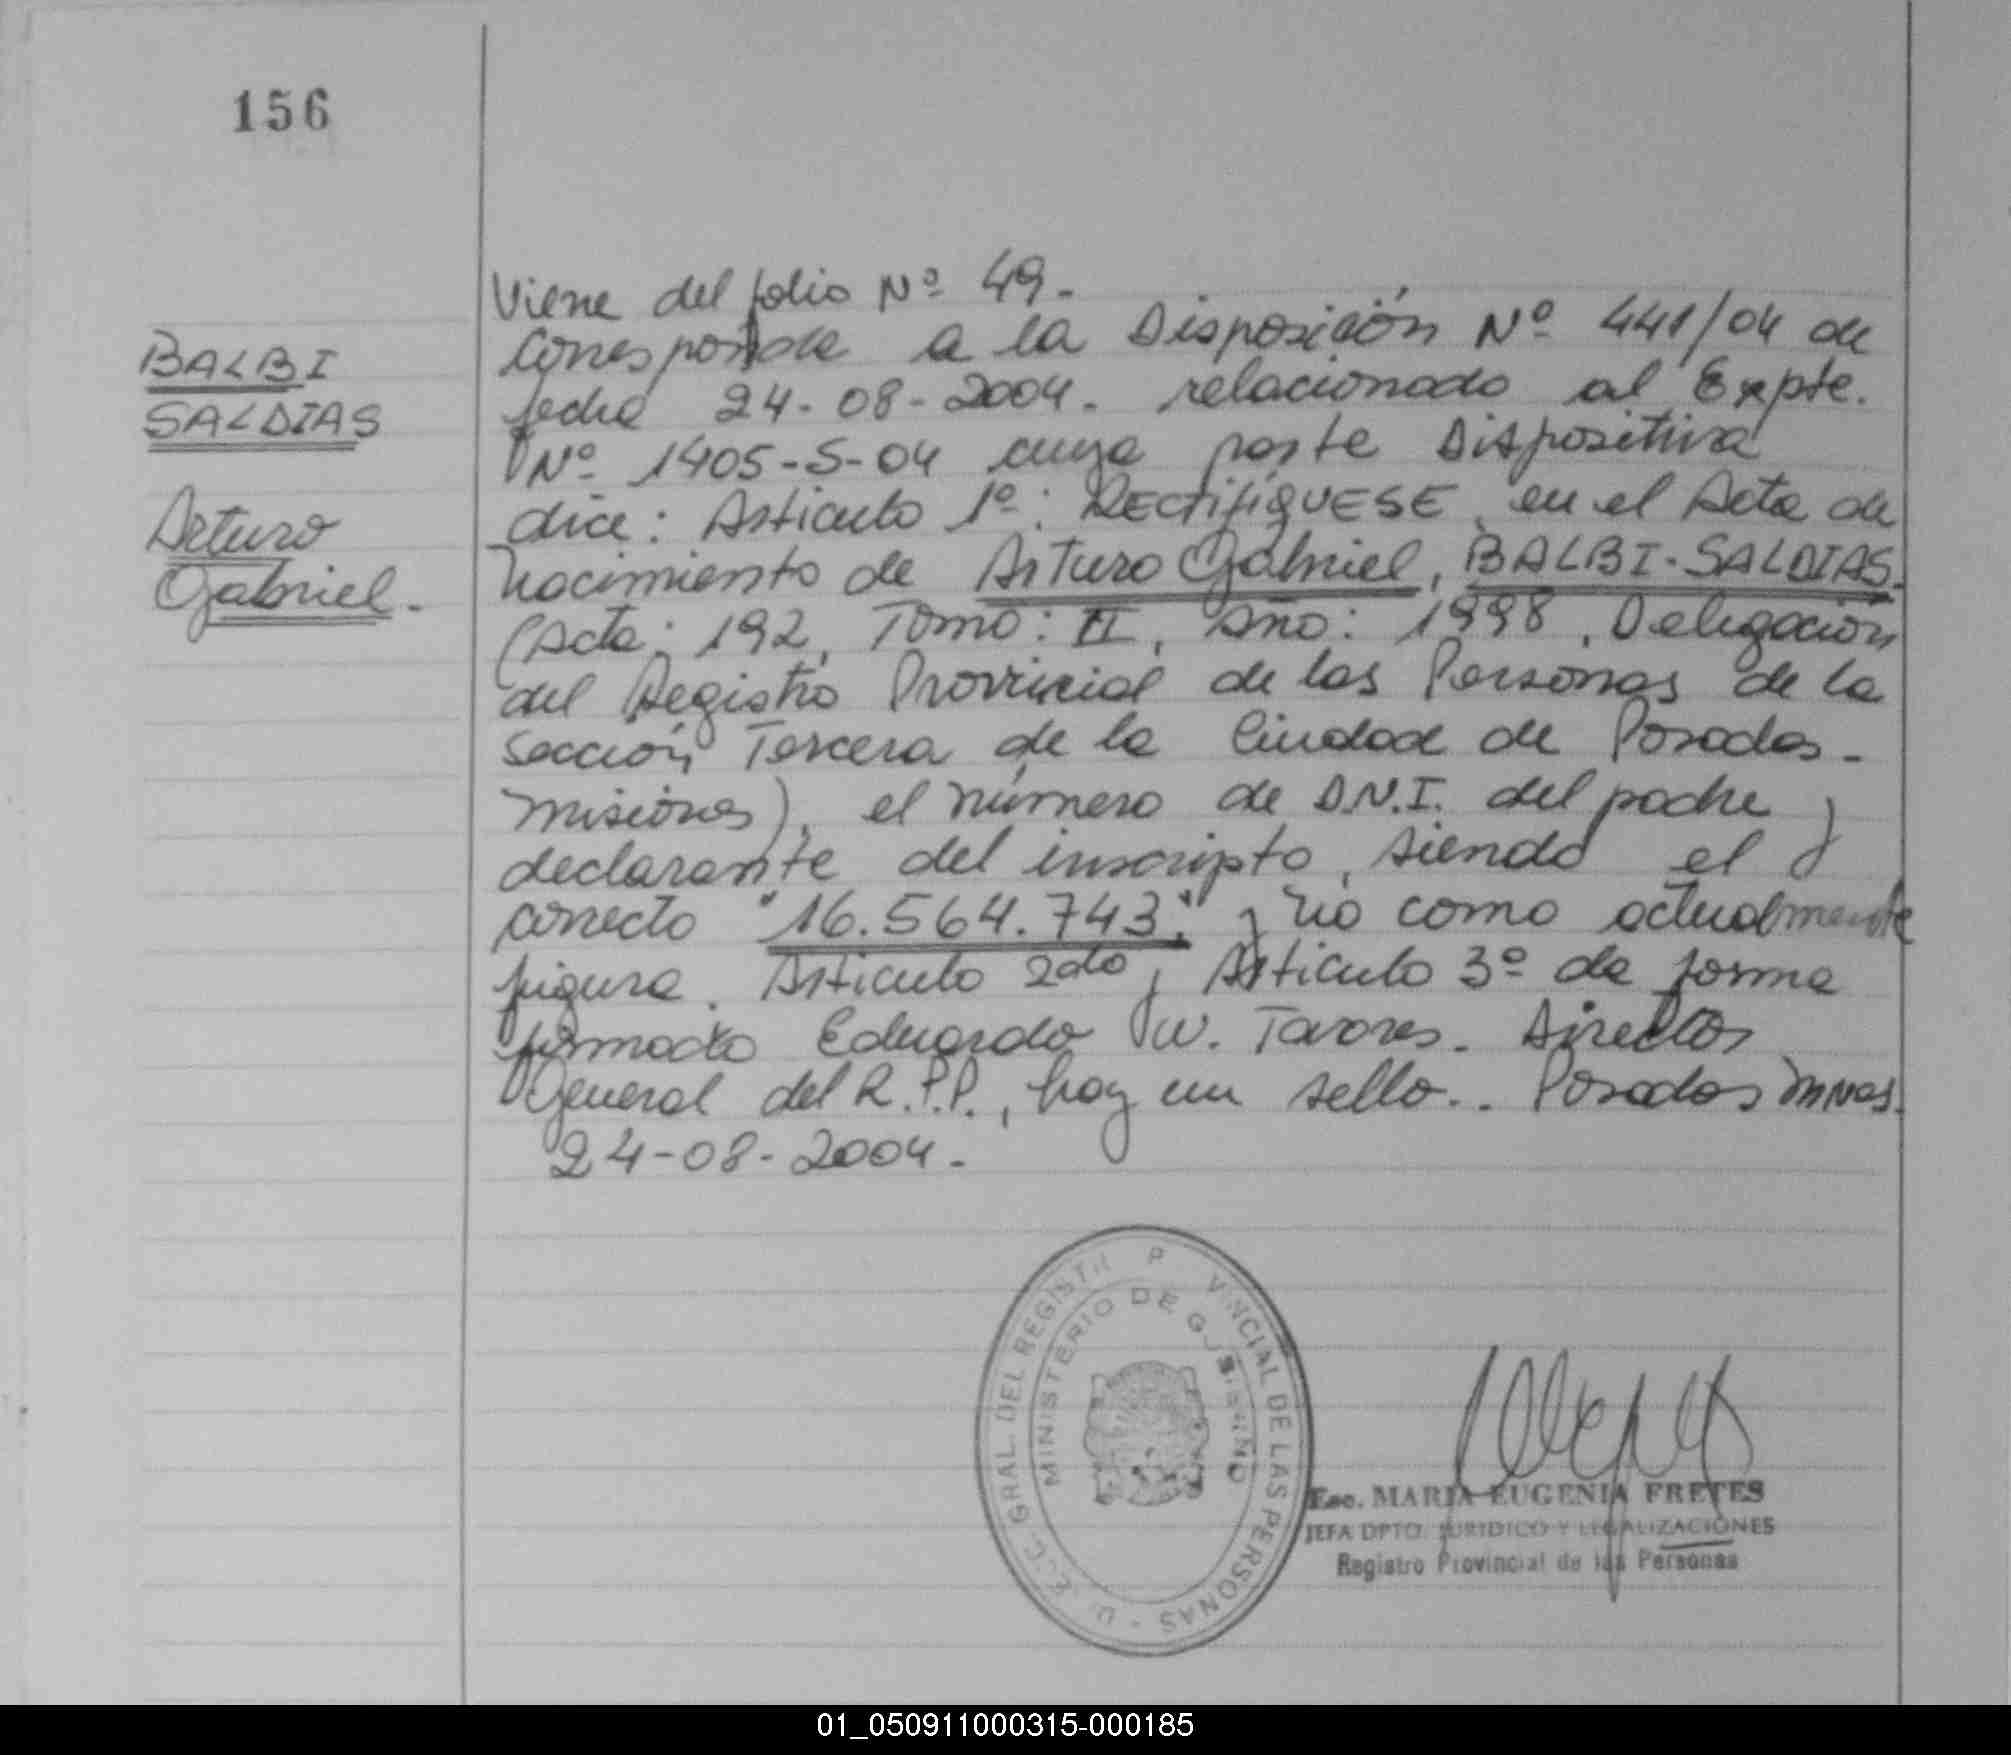 156
BALBI
SALDIAS
Arturo
Gabriel.
Viene del folio Nº 49.-
Corresponde a la Disposición Nº 441/04 de
fecha 24-08-2004. relacionado al Expte.
Nº 1405-S-04 cuya parte Dispositiva
dice: Articulo 1º: RECTIFIQUESE, en el Acta de
nacimiento de Arturo Gabriel, BALBI-SALDIAS.
(Acta: 192, Tomo: II, Año: 1998, Delegación
del Registro Provincial de las Personas de la
Sección Tercera de la Ciudad de Posadas-
Misiones), el número de D.N.I. del padre y
declarante del inscripto, siendo el
correcto "16.564.743." y no como actualmente
figura. Articulo 2do, Articulo 3º de forma
firmado Eduardo W. Tavares. Director
General del R.P.P., hay un sello.. Posadas Mnes.
24-08-2004.-
GRAL. DEL REGISTR P VINCIAL DE LAS PERSONAS -
MINISTERIO DE GOBIERNO
Esc. MARIA EUGENIA FRETES
JEFA DPTO. JURIDICO Y LEGALIZACIONES
Registro Provincial de las Personas
01_050911000315-000185